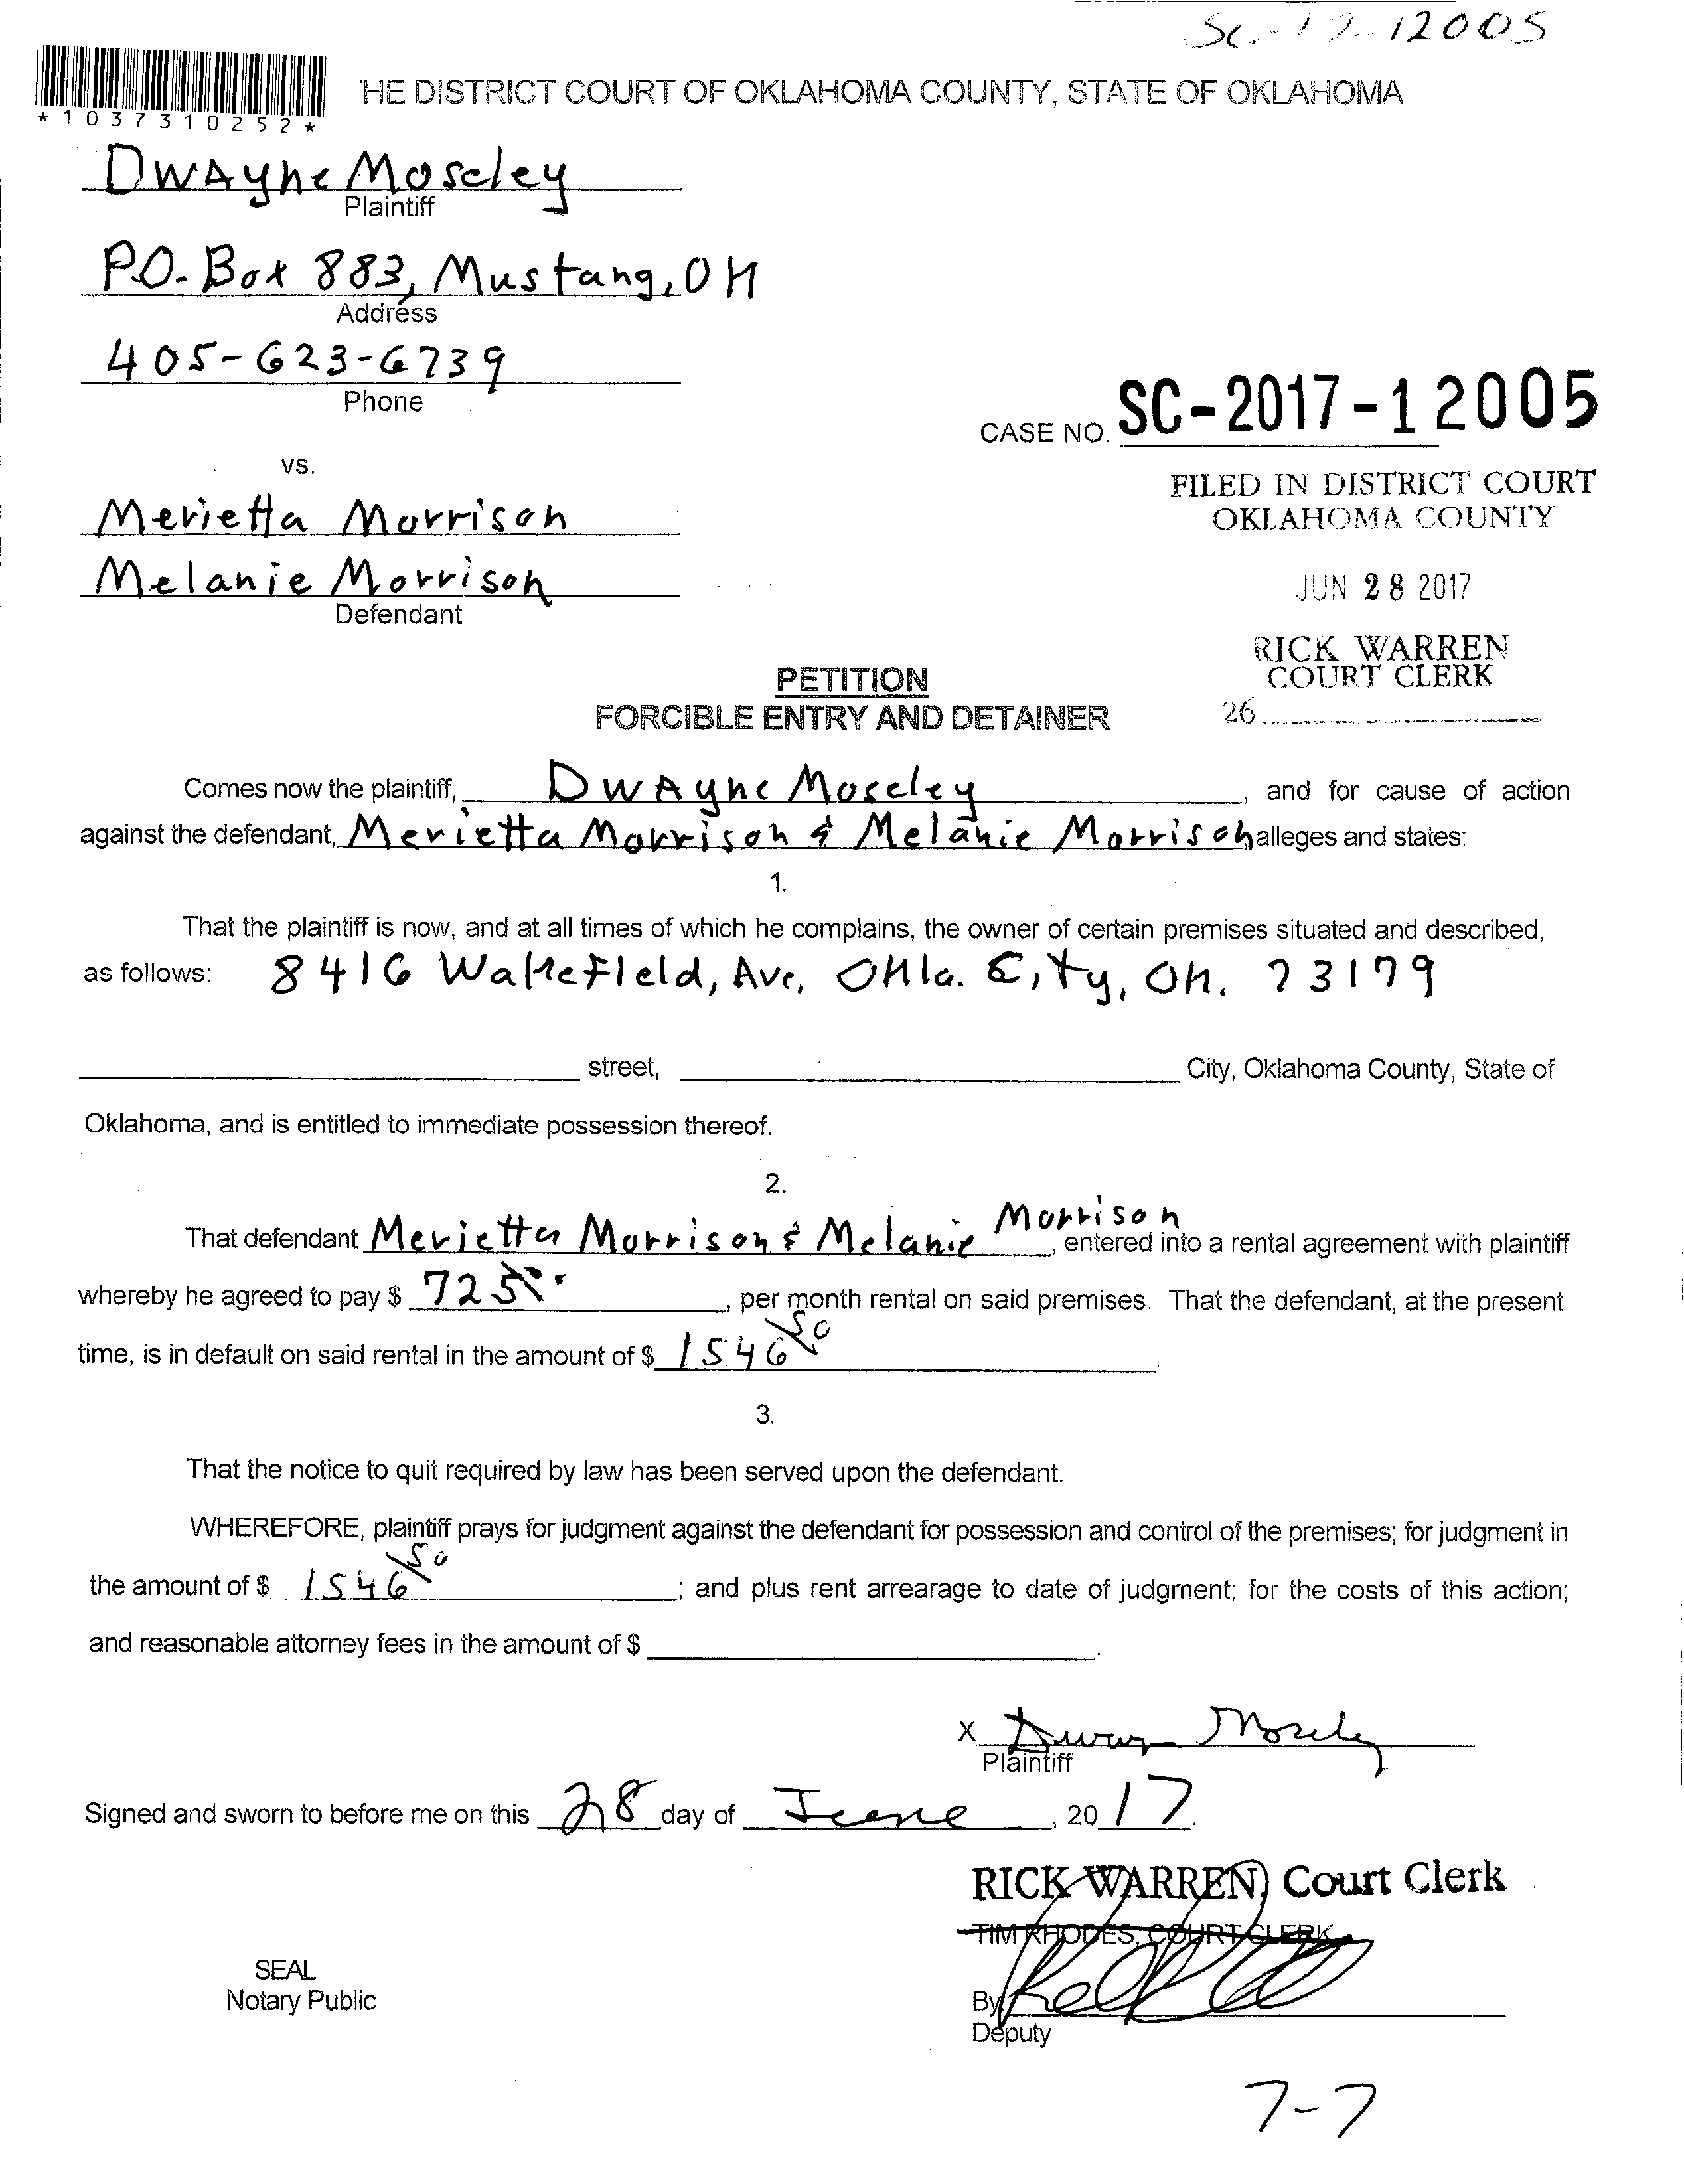 SC-17-12005
HE DISTRICT COURT OF OKLAHOMA COUNTY, STATE OF OKLAHOMA
*1037310252*
DWAyne Moseley
Plaintiff
P.O. Box 883, Mustang, OK
Address
405-623-6739
Phone
CASE NO. SC-2017-12005
vs.
FILED IN DISTRICT COURT
OKLAHOMA COUNTY
Merietta Morrison
Melanie Morrison
Defendant
JUN 28 2017
RICK WARREN
COURT CLERK
26
PETITION
FORCIBLE ENTRY AND DETAINER
Comes now the plaintiff, DWAyne Moseley, and for cause of action
against the defendant, Merietta Morrison & Melanie Morrison alleges and states:
1.
That the plaintiff is now, and at all times of which he complains, the owner of certain premises situated and described,
as follows: 8416 Wakefield, Ave, Okla. City, Ok. 73179
street, City, Oklahoma County, State of
Oklahoma, and is entitled to immediate possession thereof.
2.
That defendant Merietta Morrison & Melanie Morrison, entered into a rental agreement with plaintiff
whereby he agreed to pay $ 725, per month rental on said premises. That the defendant, at the present
time, is in default on said rental in the amount of $ 1546 50.
3.
That the notice to quit required by law has been served upon the defendant.
WHEREFORE, plaintiff prays for judgment against the defendant for possession and control of the premises; for judgment in
the amount of $ 1546 50; and plus rent arrearage to date of judgment; for the costs of this action;
and reasonable attorney fees in the amount of $ .
X Dwayne Moseley
Plaintiff
Signed and sworn to before me on this 28 day of June, 2017.
RICK WARREN, Court Clerk
TIM RHODES, COURT CLERK
SEAL
Notary Public
By
Deputy
7-7